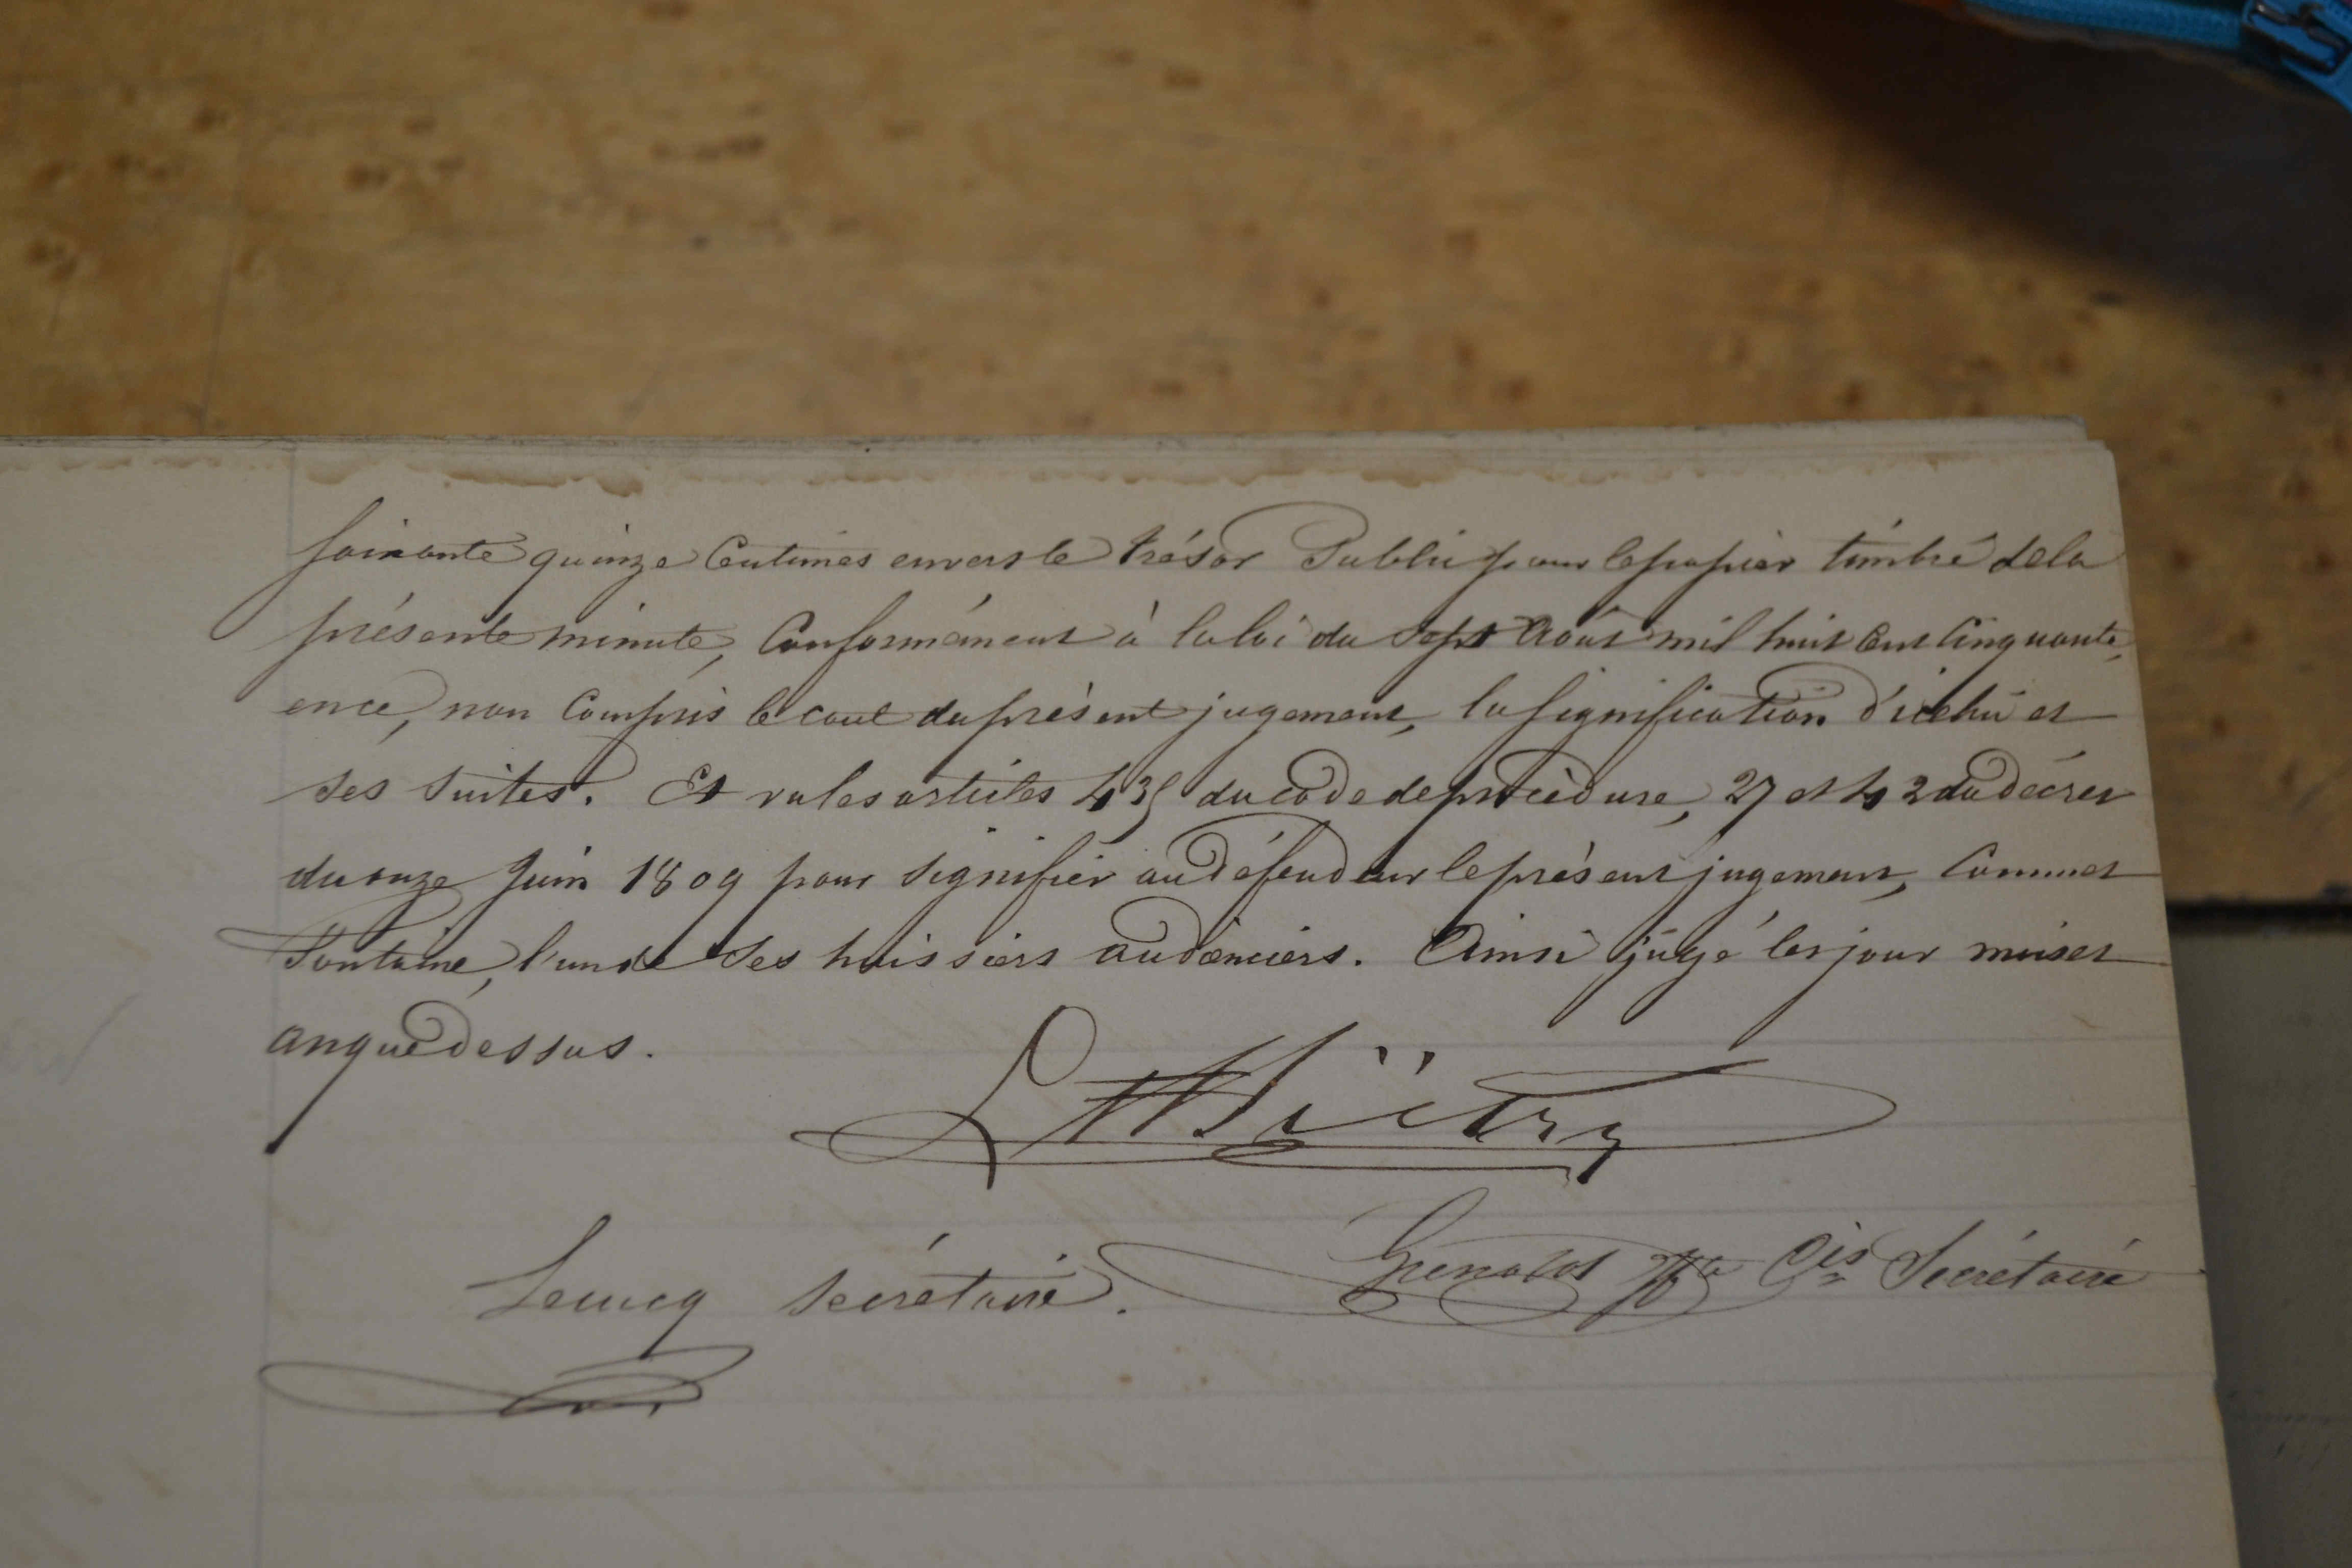 soixante quinze centimes envers le trésor Public, pour le papier timbré de la
présente minute, Conformément à la loi du sept août mil huit cent cinquante,
ence, non compris le coût du présent jugement, la signification d'icelui et
ses suites. Et vu les articles 435 du code de procédure, 27 et 42 du décret
du onze Juin 1809 pour signifier au défendeur le présent jugement, Commet
Fontaine, l'un de ses huissiers audienciers. Ainsi jugé les jour mois et
an que dessus.
Lecucq secrétaire.
Secrétaire